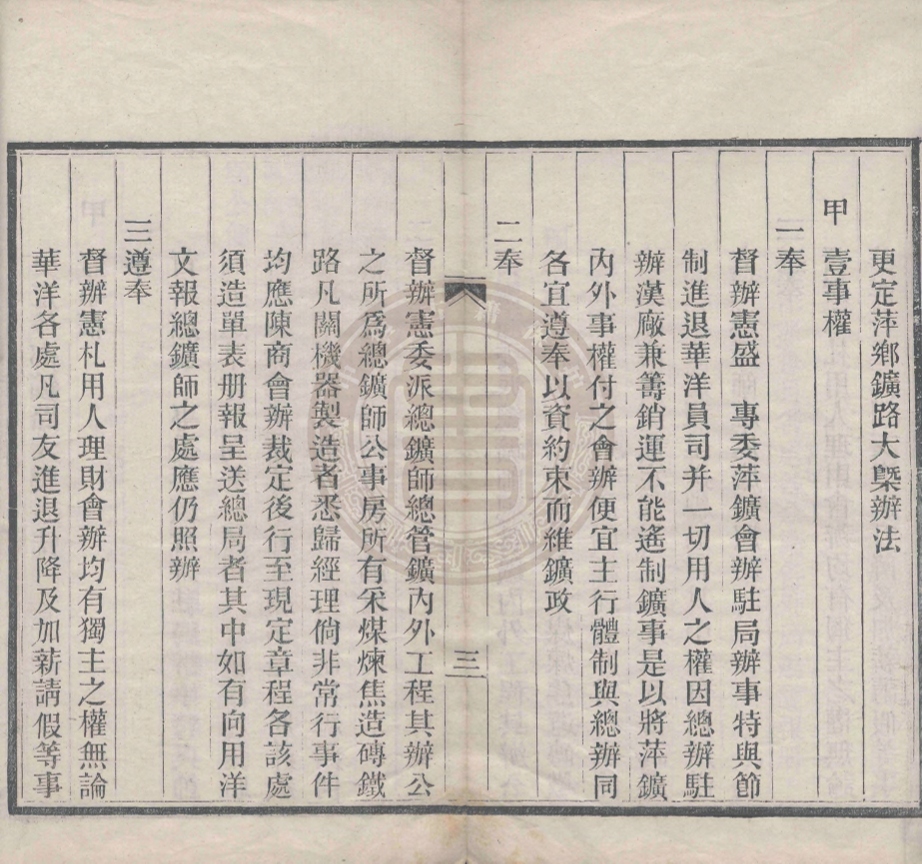 更定萍鄉鑛路大槩辦法
甲　壹事權
一奉
督辦憲盛　專委萍鑛會辦駐局辦事特與節
制進退華洋員司并一切用人之權因總辦駐
辦漢廠兼籌銷運不能遙制鑛事是以將萍鑛
內外事權付之會辦便宜主行體制與總辦同
各宜遵奉以資約束而維鑛政
二奉
三
督辦憲委派總鑛師總管鑛內外工程其辦公
之所爲總鑛師公事房所有采煤煉焦造磚鐵
路凡關機器製造者悉歸經理倘非常行事件
均應陳商會辦裁定後行至現定章程各該處
須造單表册報呈送總局者其中如有向用洋
文報總鑛師之處應仍照辦
三遵奉
督辦憲札用人理財會辦均有獨主之權無論
華洋各處凡司友進退升降及加薪請假等事